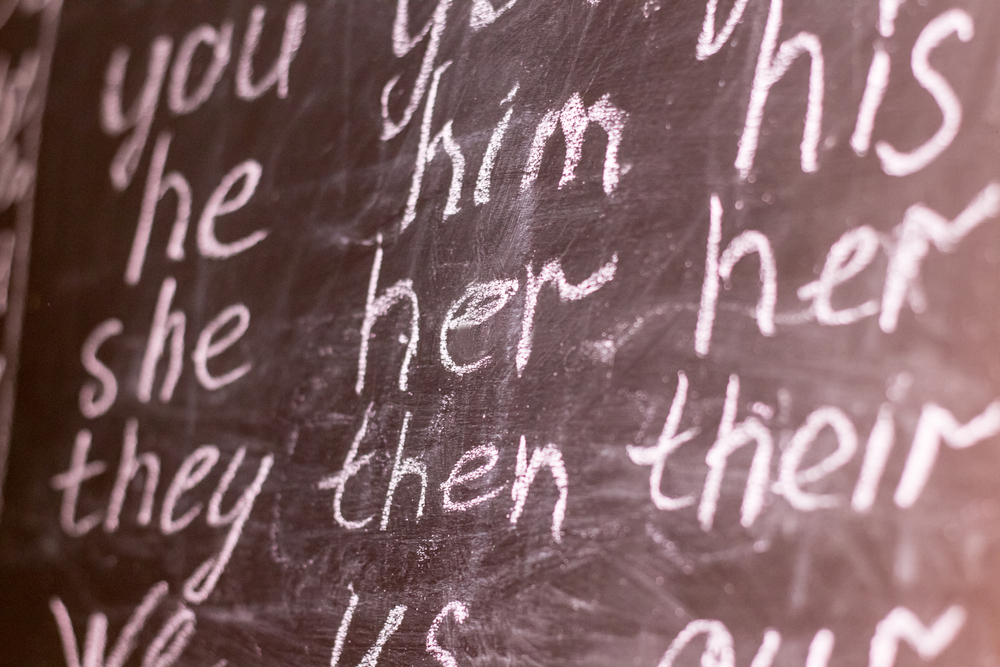 you
he him his
she her her
they then their
we us our